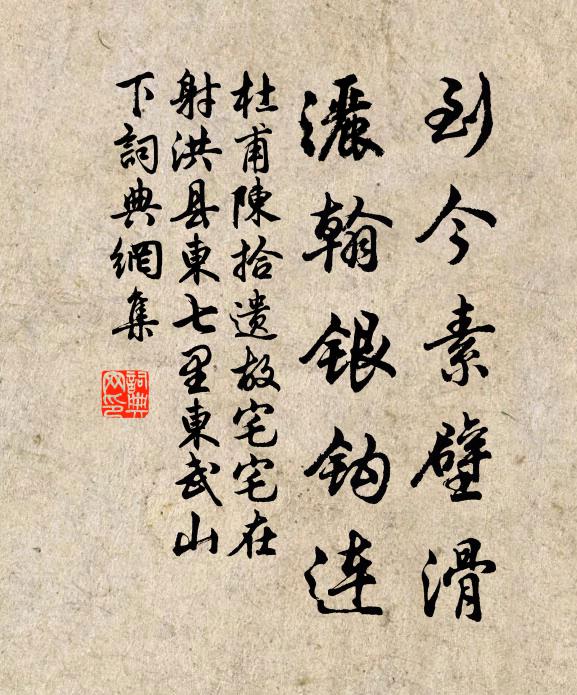 到今素壁滑
灑翰银钩连
杜甫陳拾遗故宅宅在
射洪县東七里東武山
下詞典網集
詞典
网印